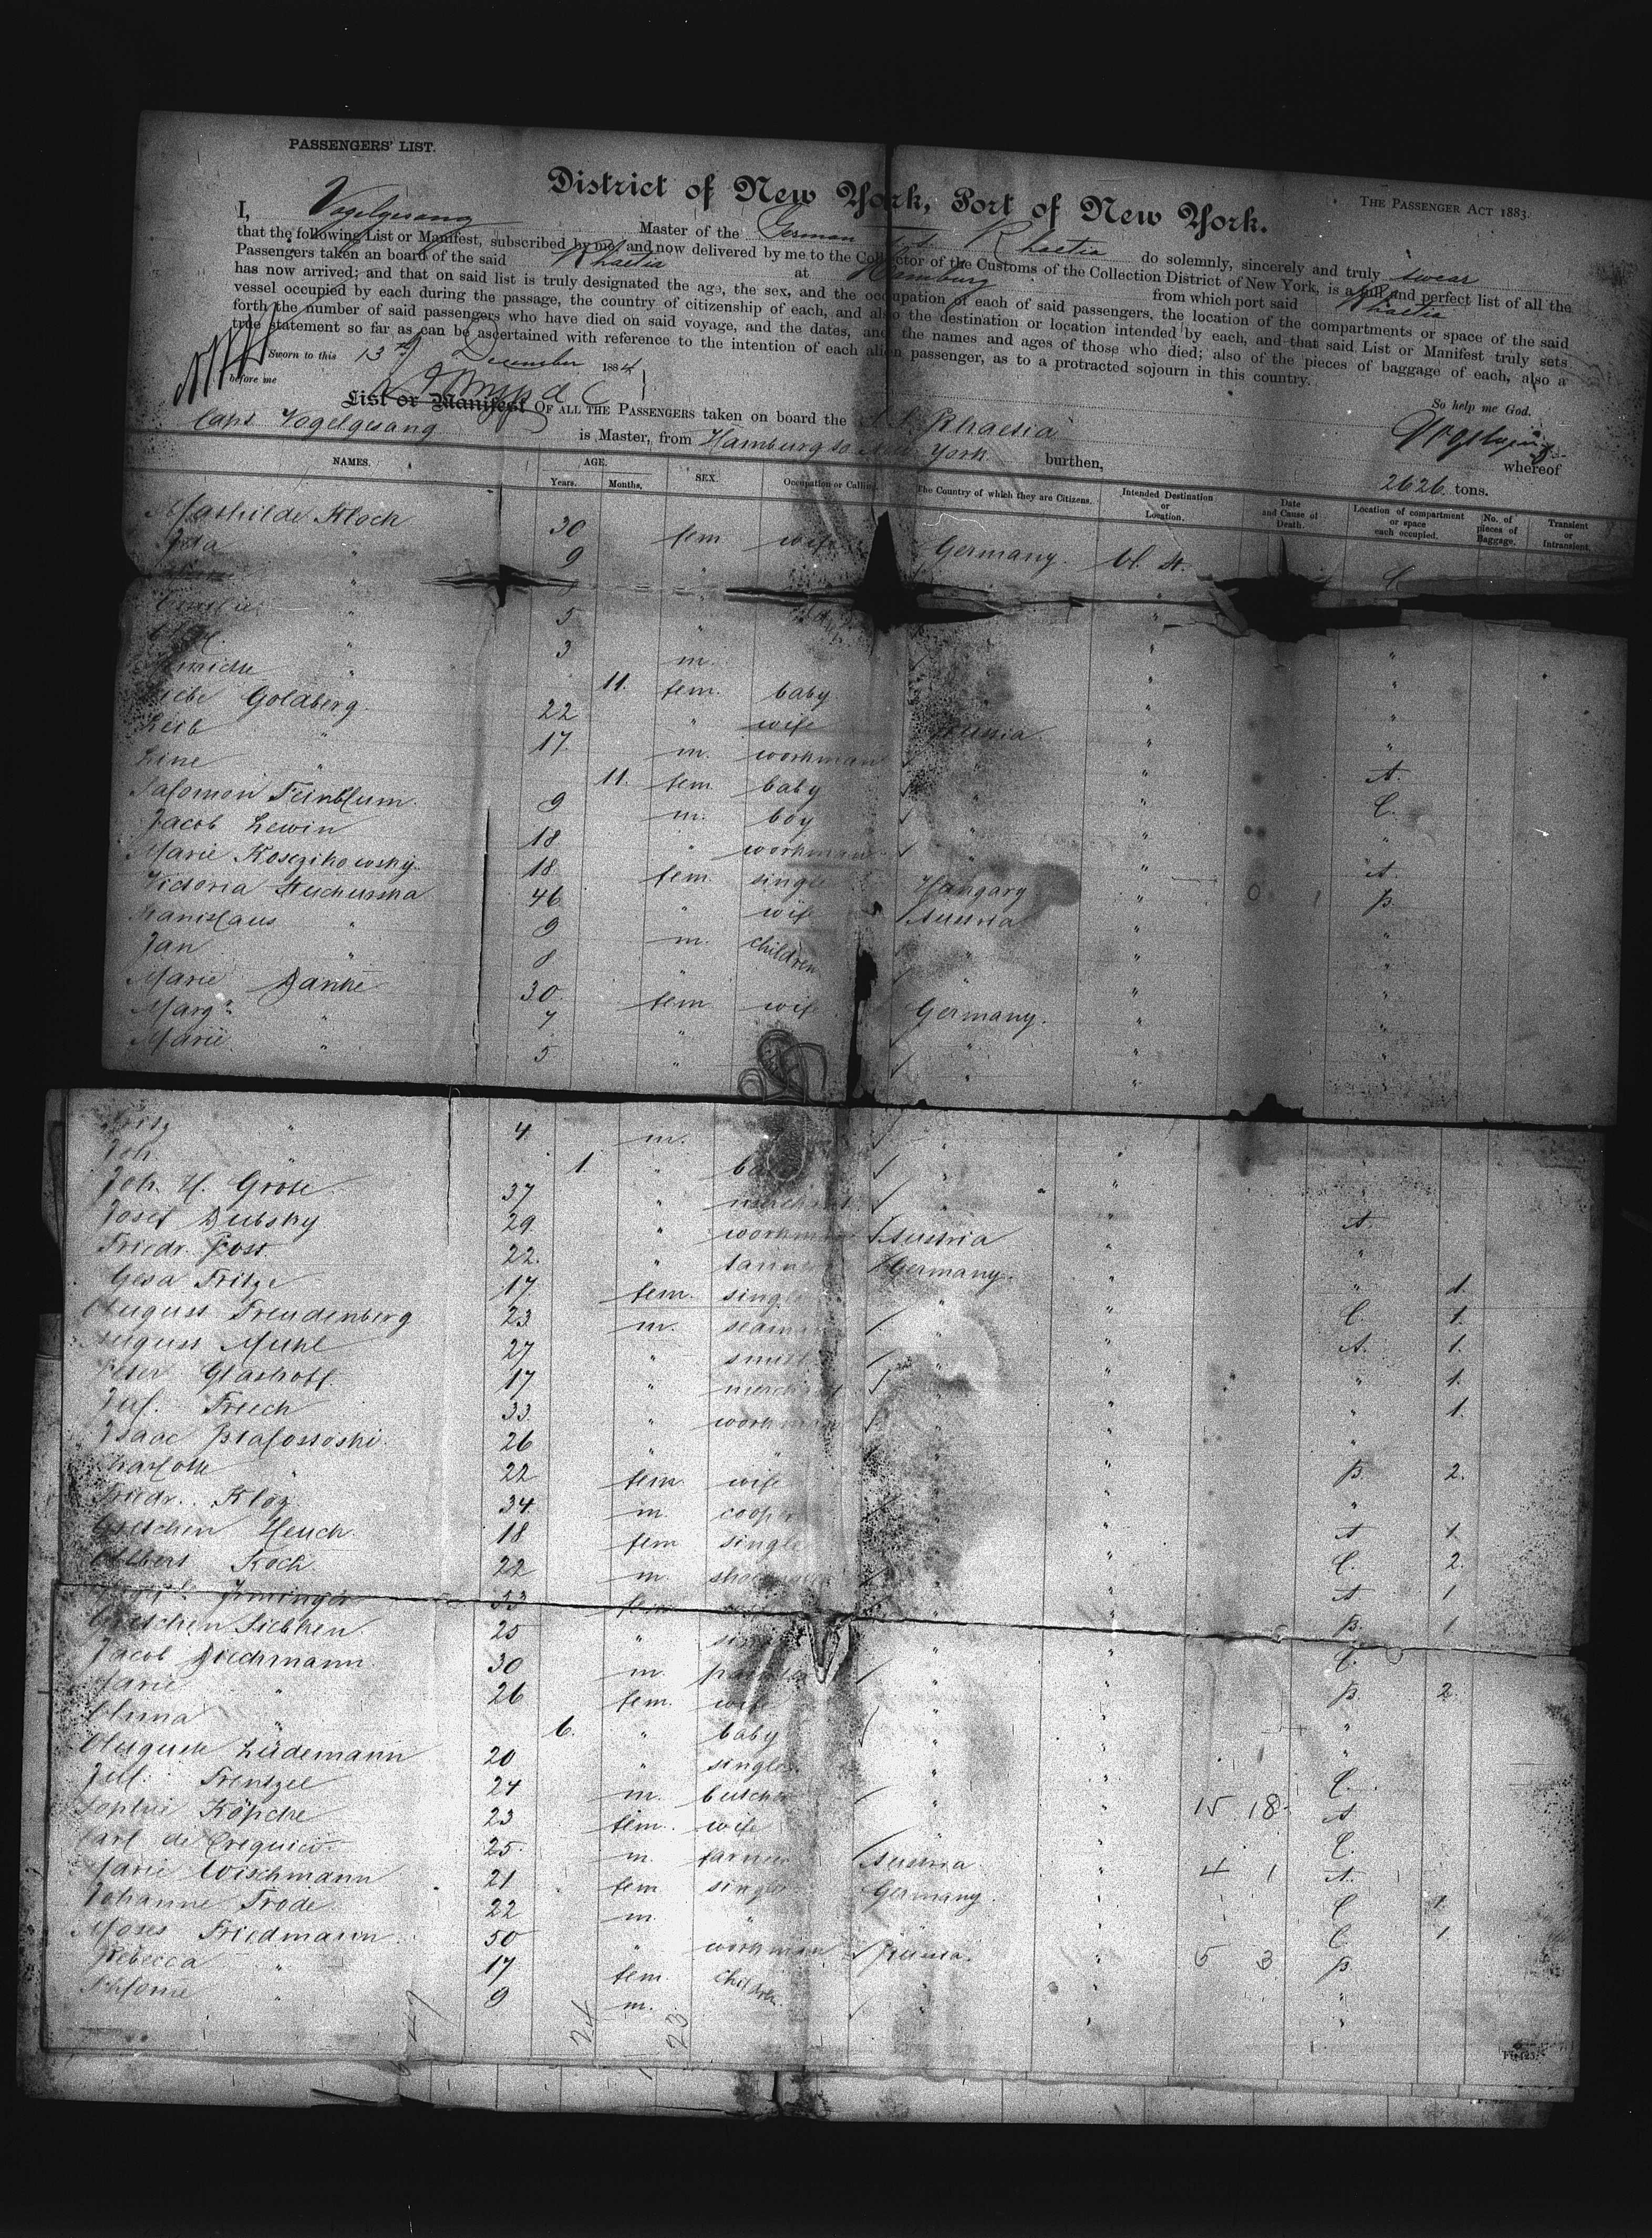 PASSENGERS' LIST.
THE PASSENGER ACT 1883.
District of New York, Port of New York.
I, Vogelgesang Master of the German S. S. Rhaetia do solemnly, sincerely and truly swear
that the following List or Manifest, subscribed by me, and now delivered by me to the Collector of the Customs of the Collection District of New York, is a full and perfect list of all the
Passengers taken an board of the said Rhaetia at Hamburg from which port said Rhaetia
has now arrived; and that on said list is truly designated the age, the sex, and the occupation of each of said passengers, the location of the compartments or space of the said
vessel occupied by each during the passage, the country of citizenship of each, and also the destination or location intended by each, and that said List or Manifest truly sets
forth the number of said passengers who have died on said voyage, and the dates, and the names and ages of those who died; also of the pieces of baggage of each, also a
true statement so far as can be ascertained with reference to the intention of each alien passenger, as to a protracted sojourn in this country.
Sworn to this 13th December 1884
before me
So help me God.
List or Manifest OF ALL THE PASSENGERS taken on board the S. S. Rhaetia whereof
Capt Vogelgesang is Master, from Hamburg to New York burthen, 2626 tons.
NAMES. AGE. Years. Months. SEX. Occupation or Calling. The Country of which they are Citizens. Intended Destination or Location. Date and Cause of Death. Location of compartment or space each occupied. No. of pieces of Baggage. Transient or Intransient.
Mathilde Kloch 30 fem wife Germany. U. St. C
" 9 "
Emilie " 5 "
" 3 m. " "
" 11. fem. baby " "
Goldberg 22 " wife Russia " "
Leib " 17 m. workman " " A.
Line " 11. fem baby " " C.
Salomon Feinblum 9 m. boy " " "
Jacob Lewin 18 " workman " " A.
Marie 18 fem single Hungary " P
Victoria 46 " wife Austria " "
Stanislaus " 9 m. children " " "
Jan " 8 " " " "
Marie Danke 30. fem wife Germany. " "
Marg. " 7 " " "
Marie " 5 " " "
Fritz " 4 m. " "
Joh. " 1. " " "
Joh. H. Grote 37 " merchant " " A.
Josef Dubsky 29. " workman Austria " "
Friedr. Jost 22. " tanner Germany. " " 1
Gesa Fritze 17 fem. single " " C. 1.
August Freudenberg 23 m. seaman " " A. 1.
August Muhl 27 " smith " " " 1.
Peter Glashoff 17 " merchant " " " 1.
Jul. Frech 33. " workman " " "
Isaac 26 " " " " P 2.
Charlotte " 22 fem wife " " "
Friedr. Kloz 34 m. cooper " " A 1.
Gretchen Heuch 18 fem single " " C. 2.
Albert Koch 22 m. shoemaker " " A 1
Irminger 53 fem " " P. 1
Gretchen Siebken 25 " single " " C.
Jacob Dieckmann 30 m. " " P 2.
Marie " 26 fem. wife " " "
Anna " 6. " baby " " "
Auguste Lüdemann 20 " single " " C.
Jul. Frentzel 24 m. butcher " " 15 18 A
Sophie Köpcke 23 fem. wife " C.
Carl de 25. m. farmer Austria " 4 1 A.
Marie Wischmann 21 fem single Germany. " C 1.
Johanne Trode 22 m. " " " C. 1
Moses Friedmann 50 " workman Russia. " 5 3 P
Rebecca " 17 fem. children " "
" 9 m. " "
24 23